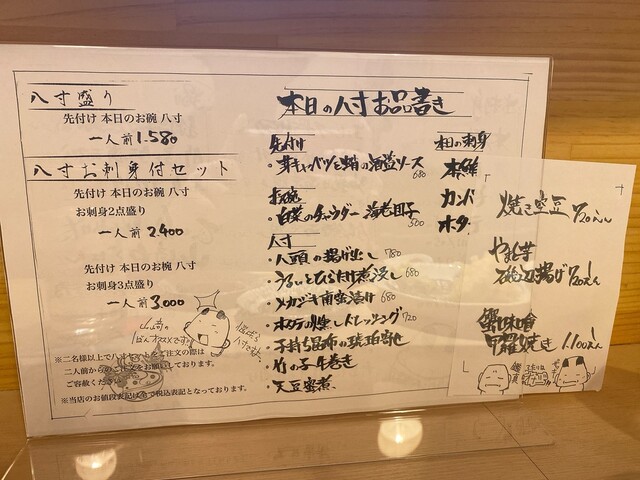 八寸盛り
先付け 本日のお椀 八寸
一人前 1.580
八寸お刺身付セット
先付け 本日のお椀 八寸
お刺身2点盛り
一人前 2.400
先付け 本日のお椀 八寸
お刺身3点盛り
一人前 3,000
※二名様以上で
ご注文の際は
二人前から
お願いしております。
ご容赦くださ
※当店のお値段表記は全て税込表記となっております。
本日の八寸お品書き
先付け
・芽キャベツと蛸の酒盗ソース 680
お椀
・白菜のチャウダー 海老団子 500
八寸
・八頭の揚げ出し 780
・うるいとひらたけ煮浸し 680
・メカジキ南蛮漬け 680
・ホタテの燻しドレッシング 720
・子持ち昆布の琥珀
・竹の子牛巻き
・天豆蜜煮
本日の刺身
本鮪
カンパ
ホタ
焼き空豆 720えん
やまと芋
磯辺揚げ 720えん
蟹味噌
甲羅焼き 1.100えん